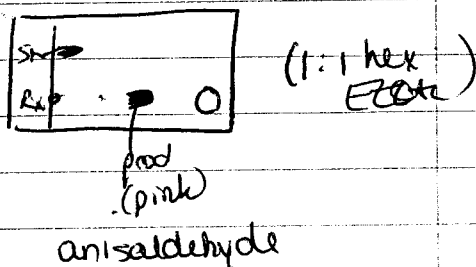 SM
(1:1 hex
EtOAc)
Rx
prod
(pink)
anisaldehyde